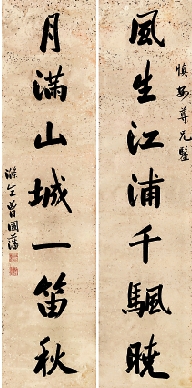 慎安尊兄鑒
風生江浦千颿曉
月滿山城一笛秋
滌生曾國藩